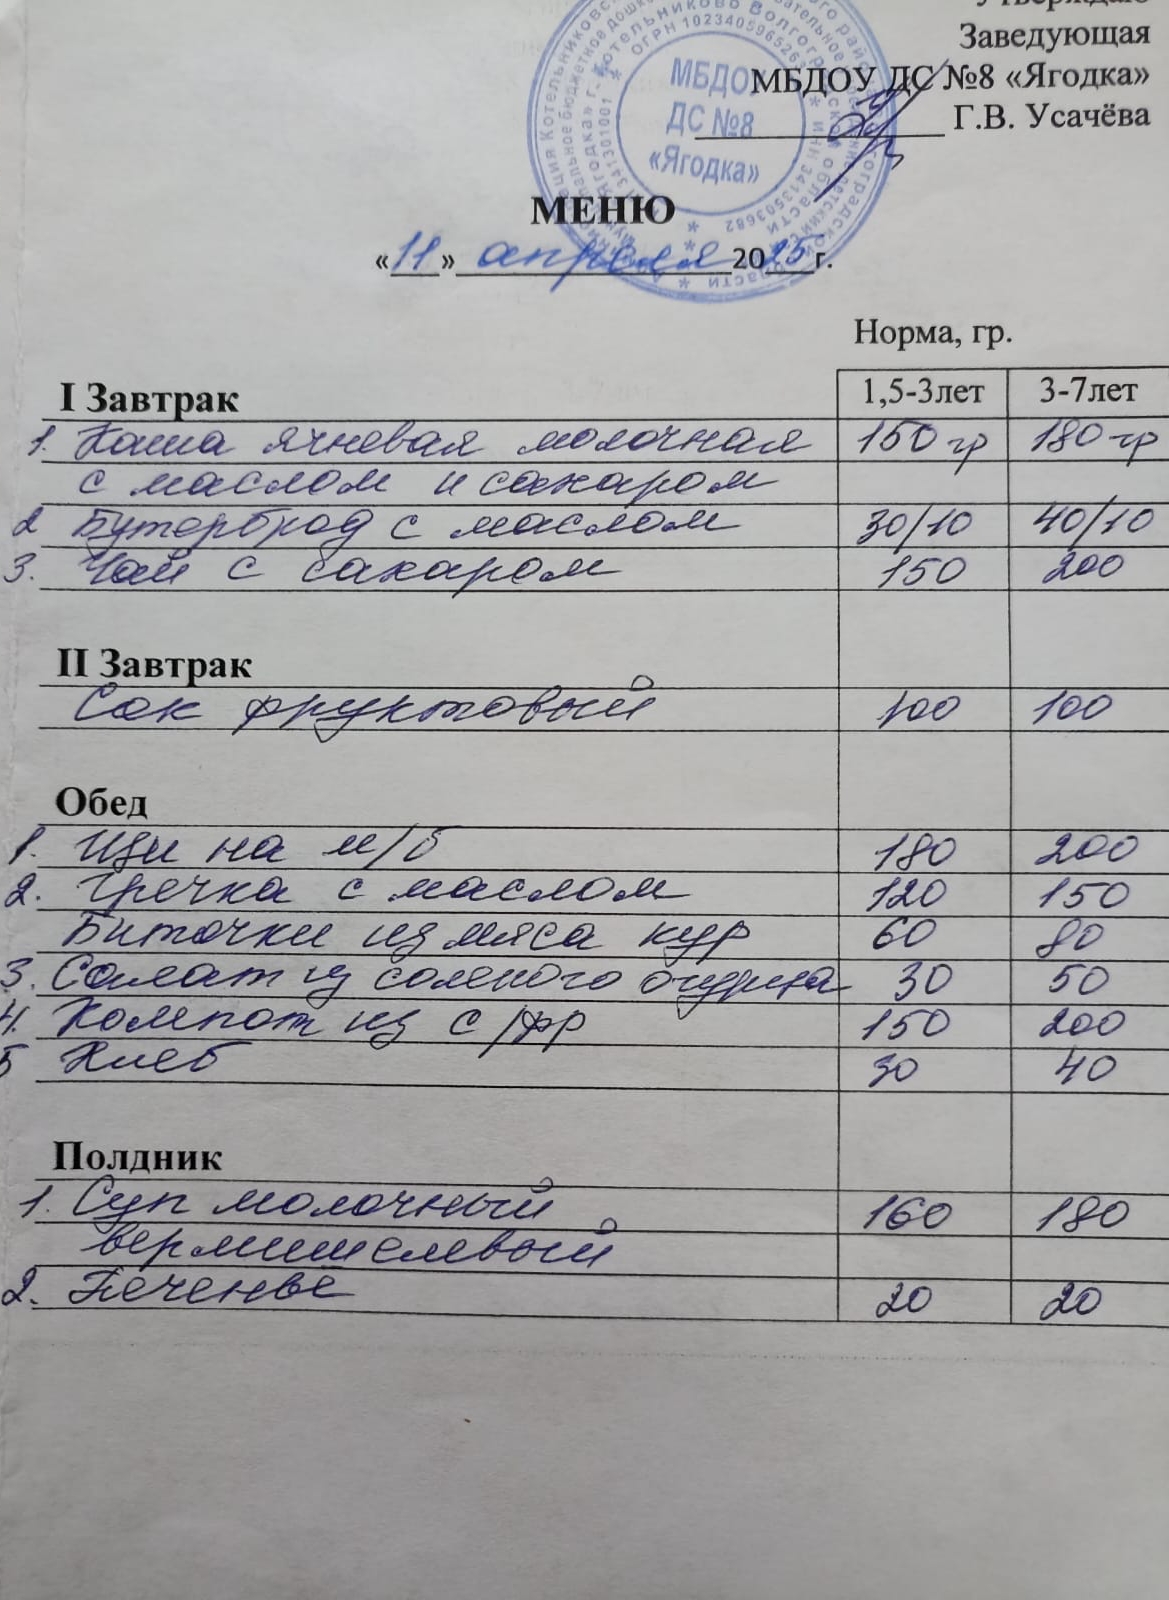 Утверждаю
Заведующая
МБДОУ ДС №8 «Ягодка»
Г.В. Усачёва
ОГРН 1023405965263
ИНН 3413503682
МБДОУ
ДС №8
«Ягодка»
МЕНЮ
«11» апреля 2025 г.
Норма, гр.
I Завтрак 1,5-3лет 3-7лет
1. Каша ячневая молочная 150 гр 180 гр
с маслом и сахаром
2 Бутерброд с маслом 30/10 40/10
3. Чай с сахаром 150 200
II Завтрак
Сок фруктовый 100 100
Обед
1. Щи на м/б 180 200
2. Гречка с маслом 120 150
Биточки из мяса кур 60 80
3. Салат из соленого огурца 30 50
4. Компот из с/фр 150 200
5 Хлеб 30 40
Полдник
1. Суп молочный 160 180
вермишелевый
2. Печенье 20 20